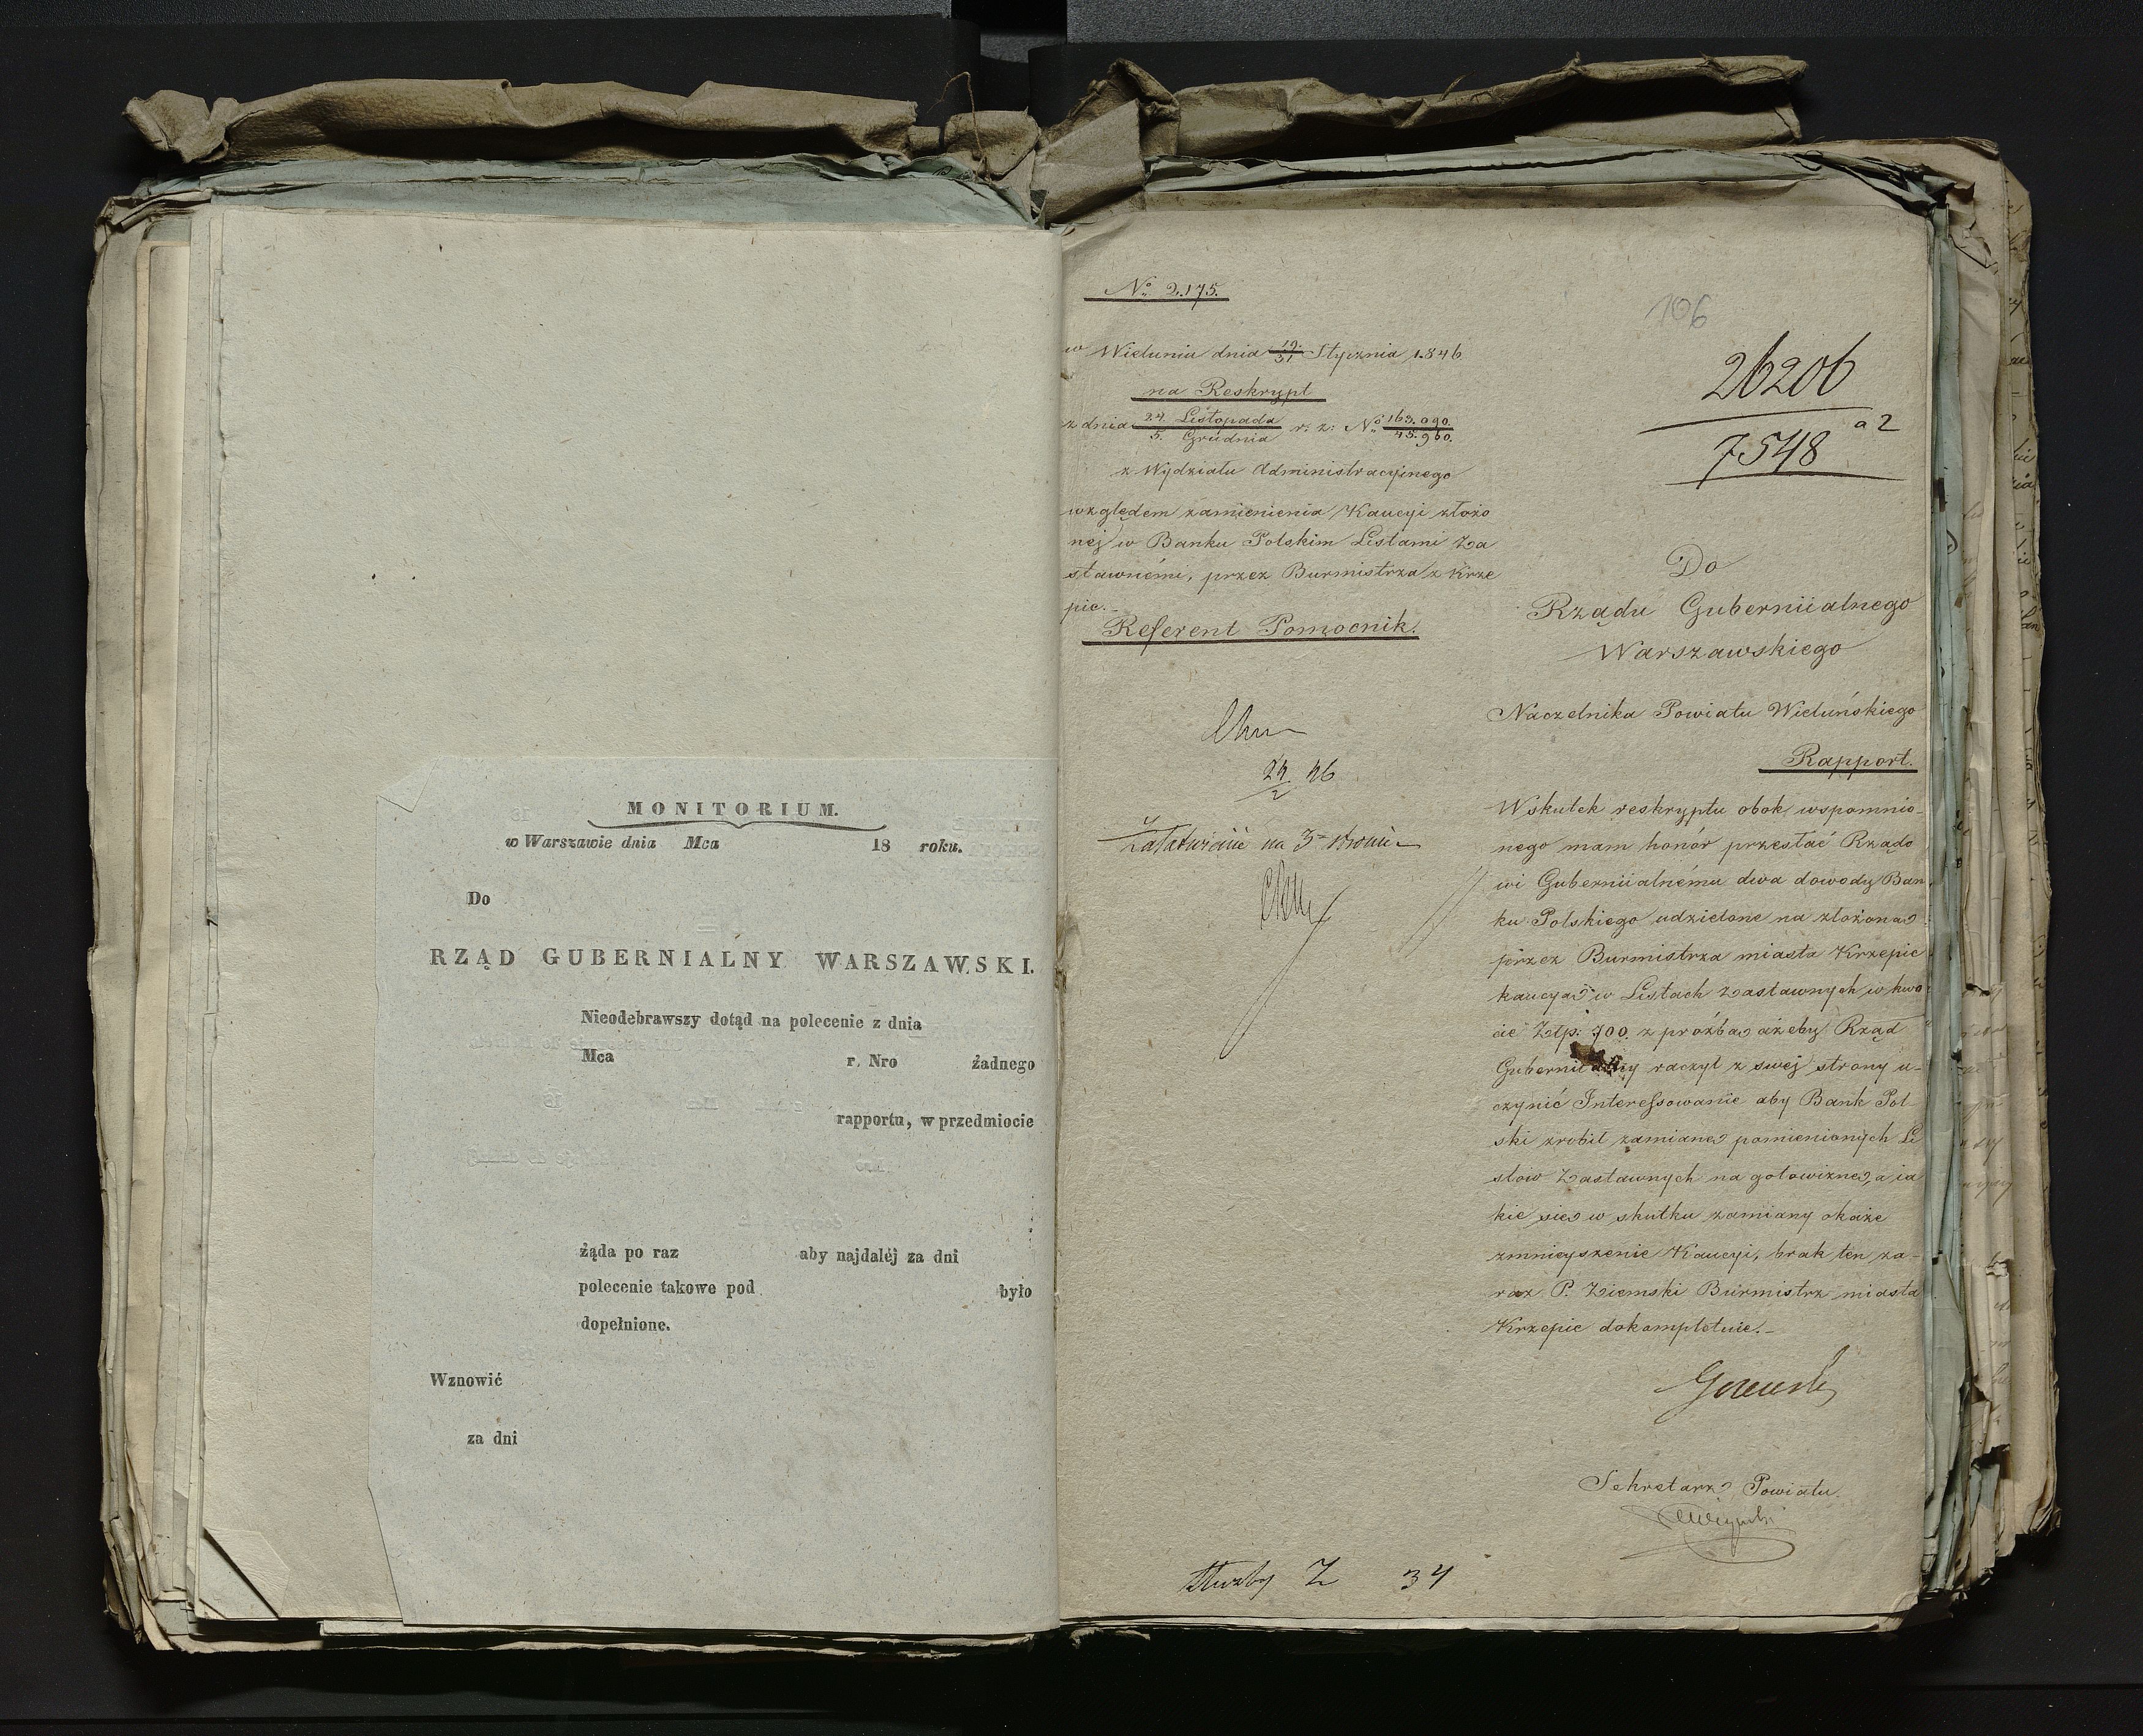 MONITORIUM.
w Warszawie dnia Mca 18 roku.
Do
RZĄD GUBERNIALNY WARSZAWSKI.
Nieodebrawszy dotąd na polecenie z dnia
Mca r. Nro żadnego
rapportu, w przedmiocie
żąda po raz aby najdaléj za dni
polecenie takowe pod było
dopełnione.
Wznowić
za dni
No 2.175.
w Wieluniu dnia 19/31 Stycznia 1846
na Reskrypt
z dnia 24 Listopada / 5. Grudnia r: z: No 163.090. / 45.960.
z Wydziału Administracyjnego
względem zamienienia Kaucyi złożo
nej w Banku Polskim Listami Za
stawnémi, przez Burmistrza z Krze
pic.-
Referent Pomocnik.
24/2 46
Załatwione na 3 stronie
106
26206
7548 a2
Do
Rządu Guberniialnego
Warszawskiego
Naczelnika Powiatu Wieluńskiego
Rapport.
Wskutek reskryptu obok wspomnio-
nego mam honór przesłać Rządo
wi Guberniialnému dwa dowody Ban
ku Polskiego udzielone na złożoną
przez Burmistrza miasta Krzepic
kaucyą w Listach Zastawnych w kwo
cie Złp: 700. z prożbą ażeby Rząd
Guberniialny raczył z swej strony u-
czynić Interessowanie aby Bank Pol
ski zrobił zamianę pomienionych Li
stow Zastawnych na gotowiznę, a ia
kie się w skutku zamiany okaże
zmnieyszenie Kaucyi, brak ten za-
raz P. Ziemski Burmistrz miasta
Krzepic dokompletuie.-
Sekretarz Powiatu
Służby Z 34